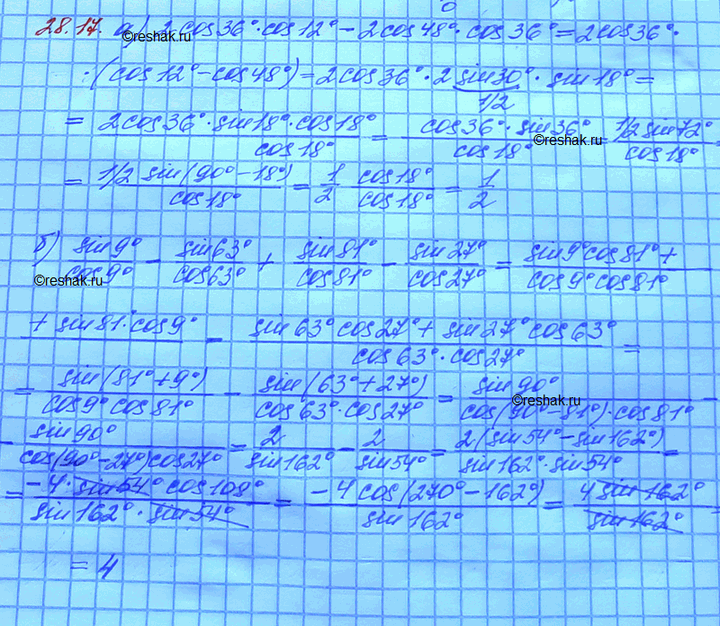 28.17. а) 2cos36°·cos12° − 2cos48°·cos36° = 2cos36°·
·(cos12° − cos48°) = 2cos36°·2 sin30°·sin18° =
1/2
= 2cos36°·sin18°·cos18° / cos18° = cos36°·sin36° / cos18° = 1/2 sin72° / cos18° =
= 1/2 sin(90° − 18°) / cos18° = 1/2 cos18° / cos18° = 1/2
б) sin9° / cos9° − sin63° / cos63° + sin81° / cos81° − sin27° / cos27° = sin9°cos81° + / cos9°cos81°
+ sin81°cos9° − sin63°cos27° + sin27°cos63° / cos63°·cos27° =
= sin(81° + 9°) / cos9°cos81° − sin(63° + 27°) / cos63°·cos27° = sin90° / cos(90° − 81°)·cos81° −
− sin90° / cos(90° − 27°)cos27° = 2 / sin162° − 2 / sin54° = 2(sin54° − sin162°) / sin162°·sin54° =
= −4·sin54°cos108° / sin162°·sin54° = −4cos(270° − 162°) / sin162° = 4sin162° / sin162° =
= 4
©reshak.ru
©reshak.ru
©reshak.ru
©reshak.ru